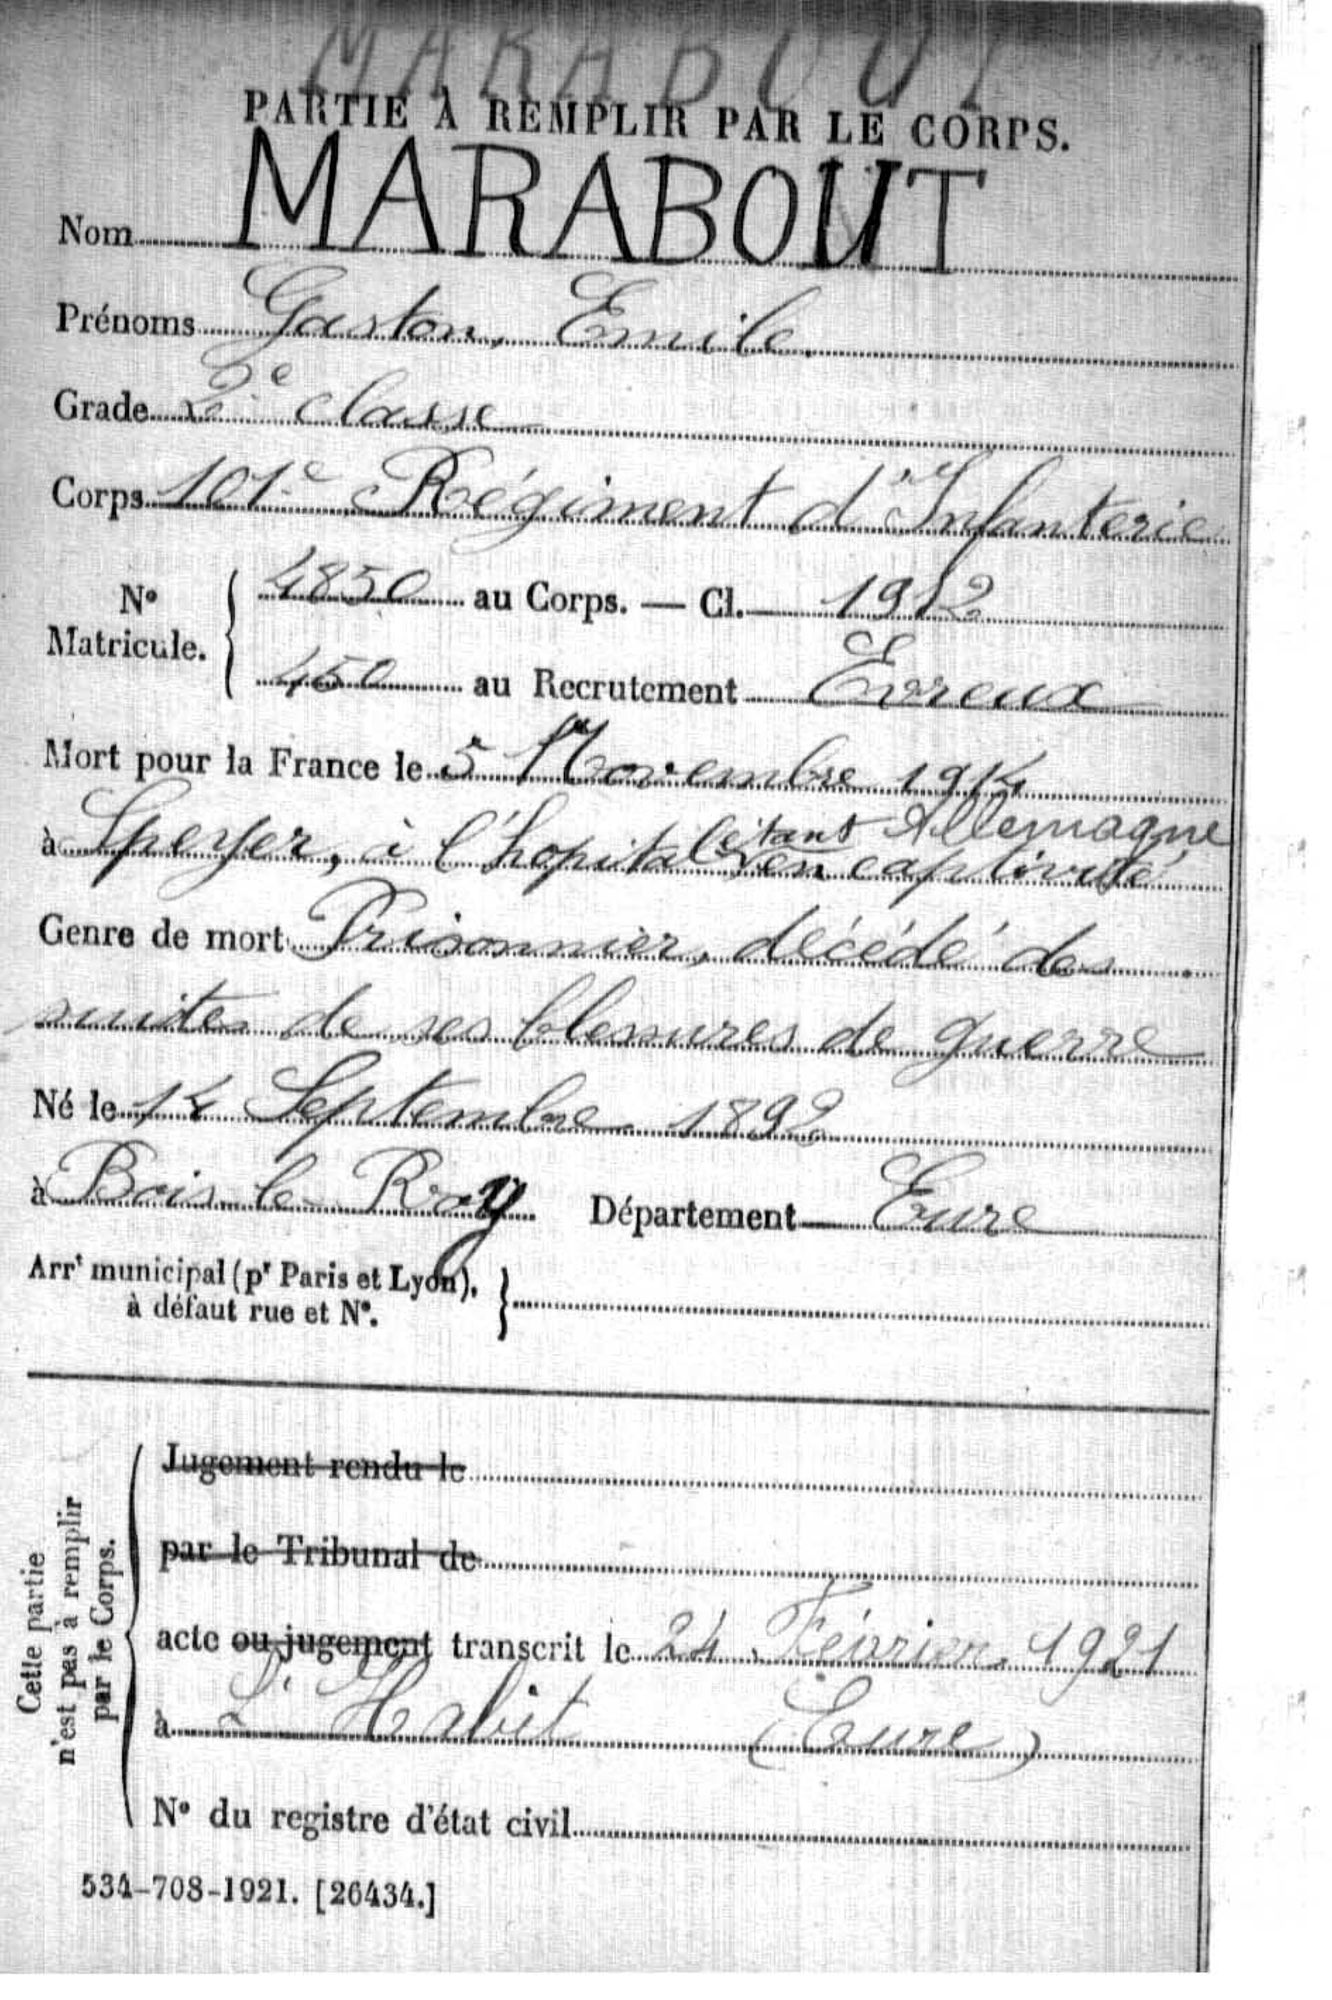 MARABOUT
PARTIE À REMPLIR PAR LE CORPS.
Nom MARABOUT
Prénoms Gaston, Emile.
Grade 2e classe
Corps 101e Régiment d'Infanterie
No Matricule. { 4850 au Corps. — Cl. 1912
450 au Recrutement Evreux
Mort pour la France le 5 Novembre 1914
étant Allemagne
à Speyer, à l'hopital en captivité
Genre de mort Prisonnier, décédé des
suites de ses blessures de guerre
Né le 14 Septembre 1892
à Bois le Roy Département Eure
Arrt municipal (pr Paris et Lyon), }
à défaut rue et No.
Cette partie
n'est pas à remplir
par le Corps.
Jugement rendu le
par le Tribunal de
acte ou jugement transcrit le 24 Février 1921
à L'Habit (Eure)
No du registre d'état civil
534-708-1921. [26434.]